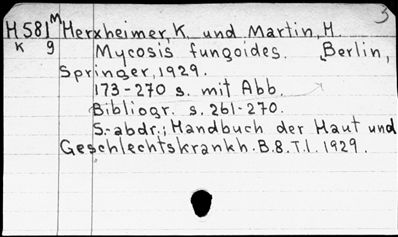 3
H581 M Herxheimer, K. und Martin, H.
K 9 Mycosis fungoides. Berlin,
Springer, 1929.
173-270 s. mit Abb.
Bibliogr. s. 261-270.
S.-abdr.; Handbuch der Haut und
Geschlechtskrankh. B.8. T.1. 1929.